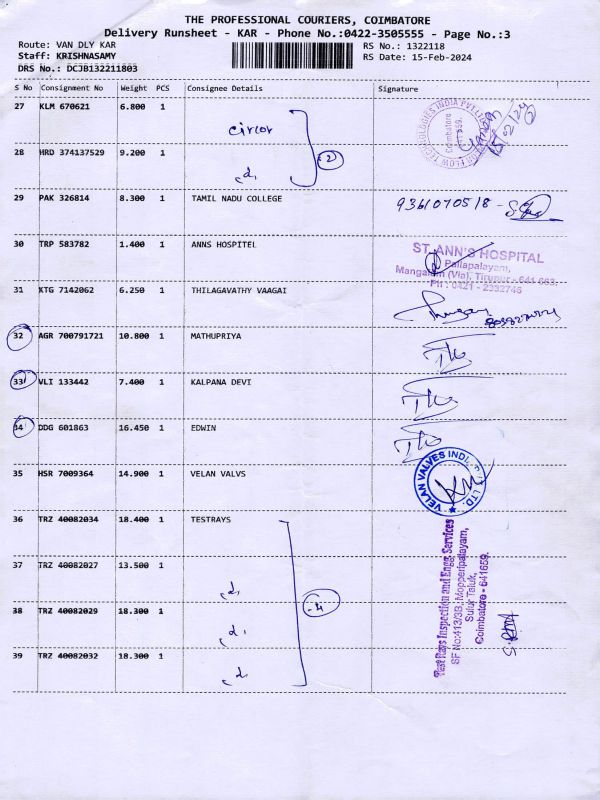 THE PROFESSIONAL COURIERS, COIMBATORE
Delivery Runsheet - KAR - Phone No.:0422-3505555 - Page No.:3
Route: VAN DLY KAR
RS No.: 1322118
Staff: KRISHNASAMY
RS Date: 15-Feb-2024
DRS No.: DCJB132211803
S No Consignment No Weight PCS Consignee Details Signature
27 KLM 670621 6.800 1
28 HRD 374137529 9.200 1
(2)
Coimbatore
15/02/24
29 PAK 326814 8.300 1 TAMIL NADU COLLEGE
9361070518
30 TRP 583782 1.400 1 ANNS HOSPITEL
ST. ANN'S HOSPITAL
Pallapalayam,
Mangalam (Via), Tirupur - 641 663.
Ph : 0421 - 2332746
31 KTG 7142062 6.250 1 THILAGAVATHY VAAGAI
32 AGR 700791721 10.800 1 MATHUPRIYA
33 VLI 133442 7.400 1 KALPANA DEVI
34 DDG 601863 16.450 1 EDWIN
35 HSR 7009364 14.900 1 VELAN VALVS
VELAN VALVES INDI
LTD.
36 TRZ 40082034 18.400 1 TESTRAYS
37 TRZ 40082027 13.500 1
38 TRZ 40082029 18.300 1
39 TRZ 40082032 18.300 1
Test Rays Inspection and Engg Services
SF No:413/3B, Mopperipalayam,
Sulur Taluk,
Coimbatore - 641659.